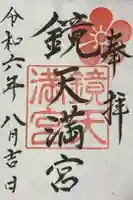 奉拝
鏡天満宮
鏡天
満宮
令和六年八月吉日